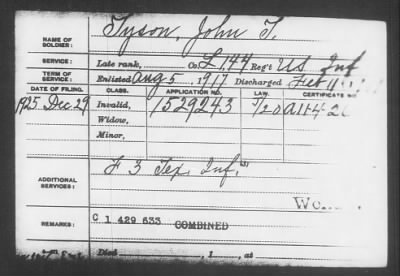 NAME OF SOLDIER: Tyson, John T.
SERVICE: Late rank, Co. L, 144 Reg't US Inf
TERM OF SERVICE: Enlisted Aug 5, 1917 Discharged
DATE OF FILING. CLASS. APPLICATION NO. LAW. CERTIFICATE NO.
1925 Dec 29 Invalid, 1529243
Widow,
Minor,
ADDITIONAL SERVICES: F 3 Tex. Inf.
REMARKS: C 1 429 633 COMBINED
Died , 1 , at